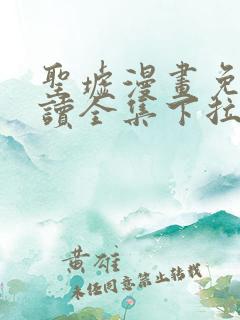 聖墟漫畫免
讀全集下拉
黄雄
未经同意禁止转载